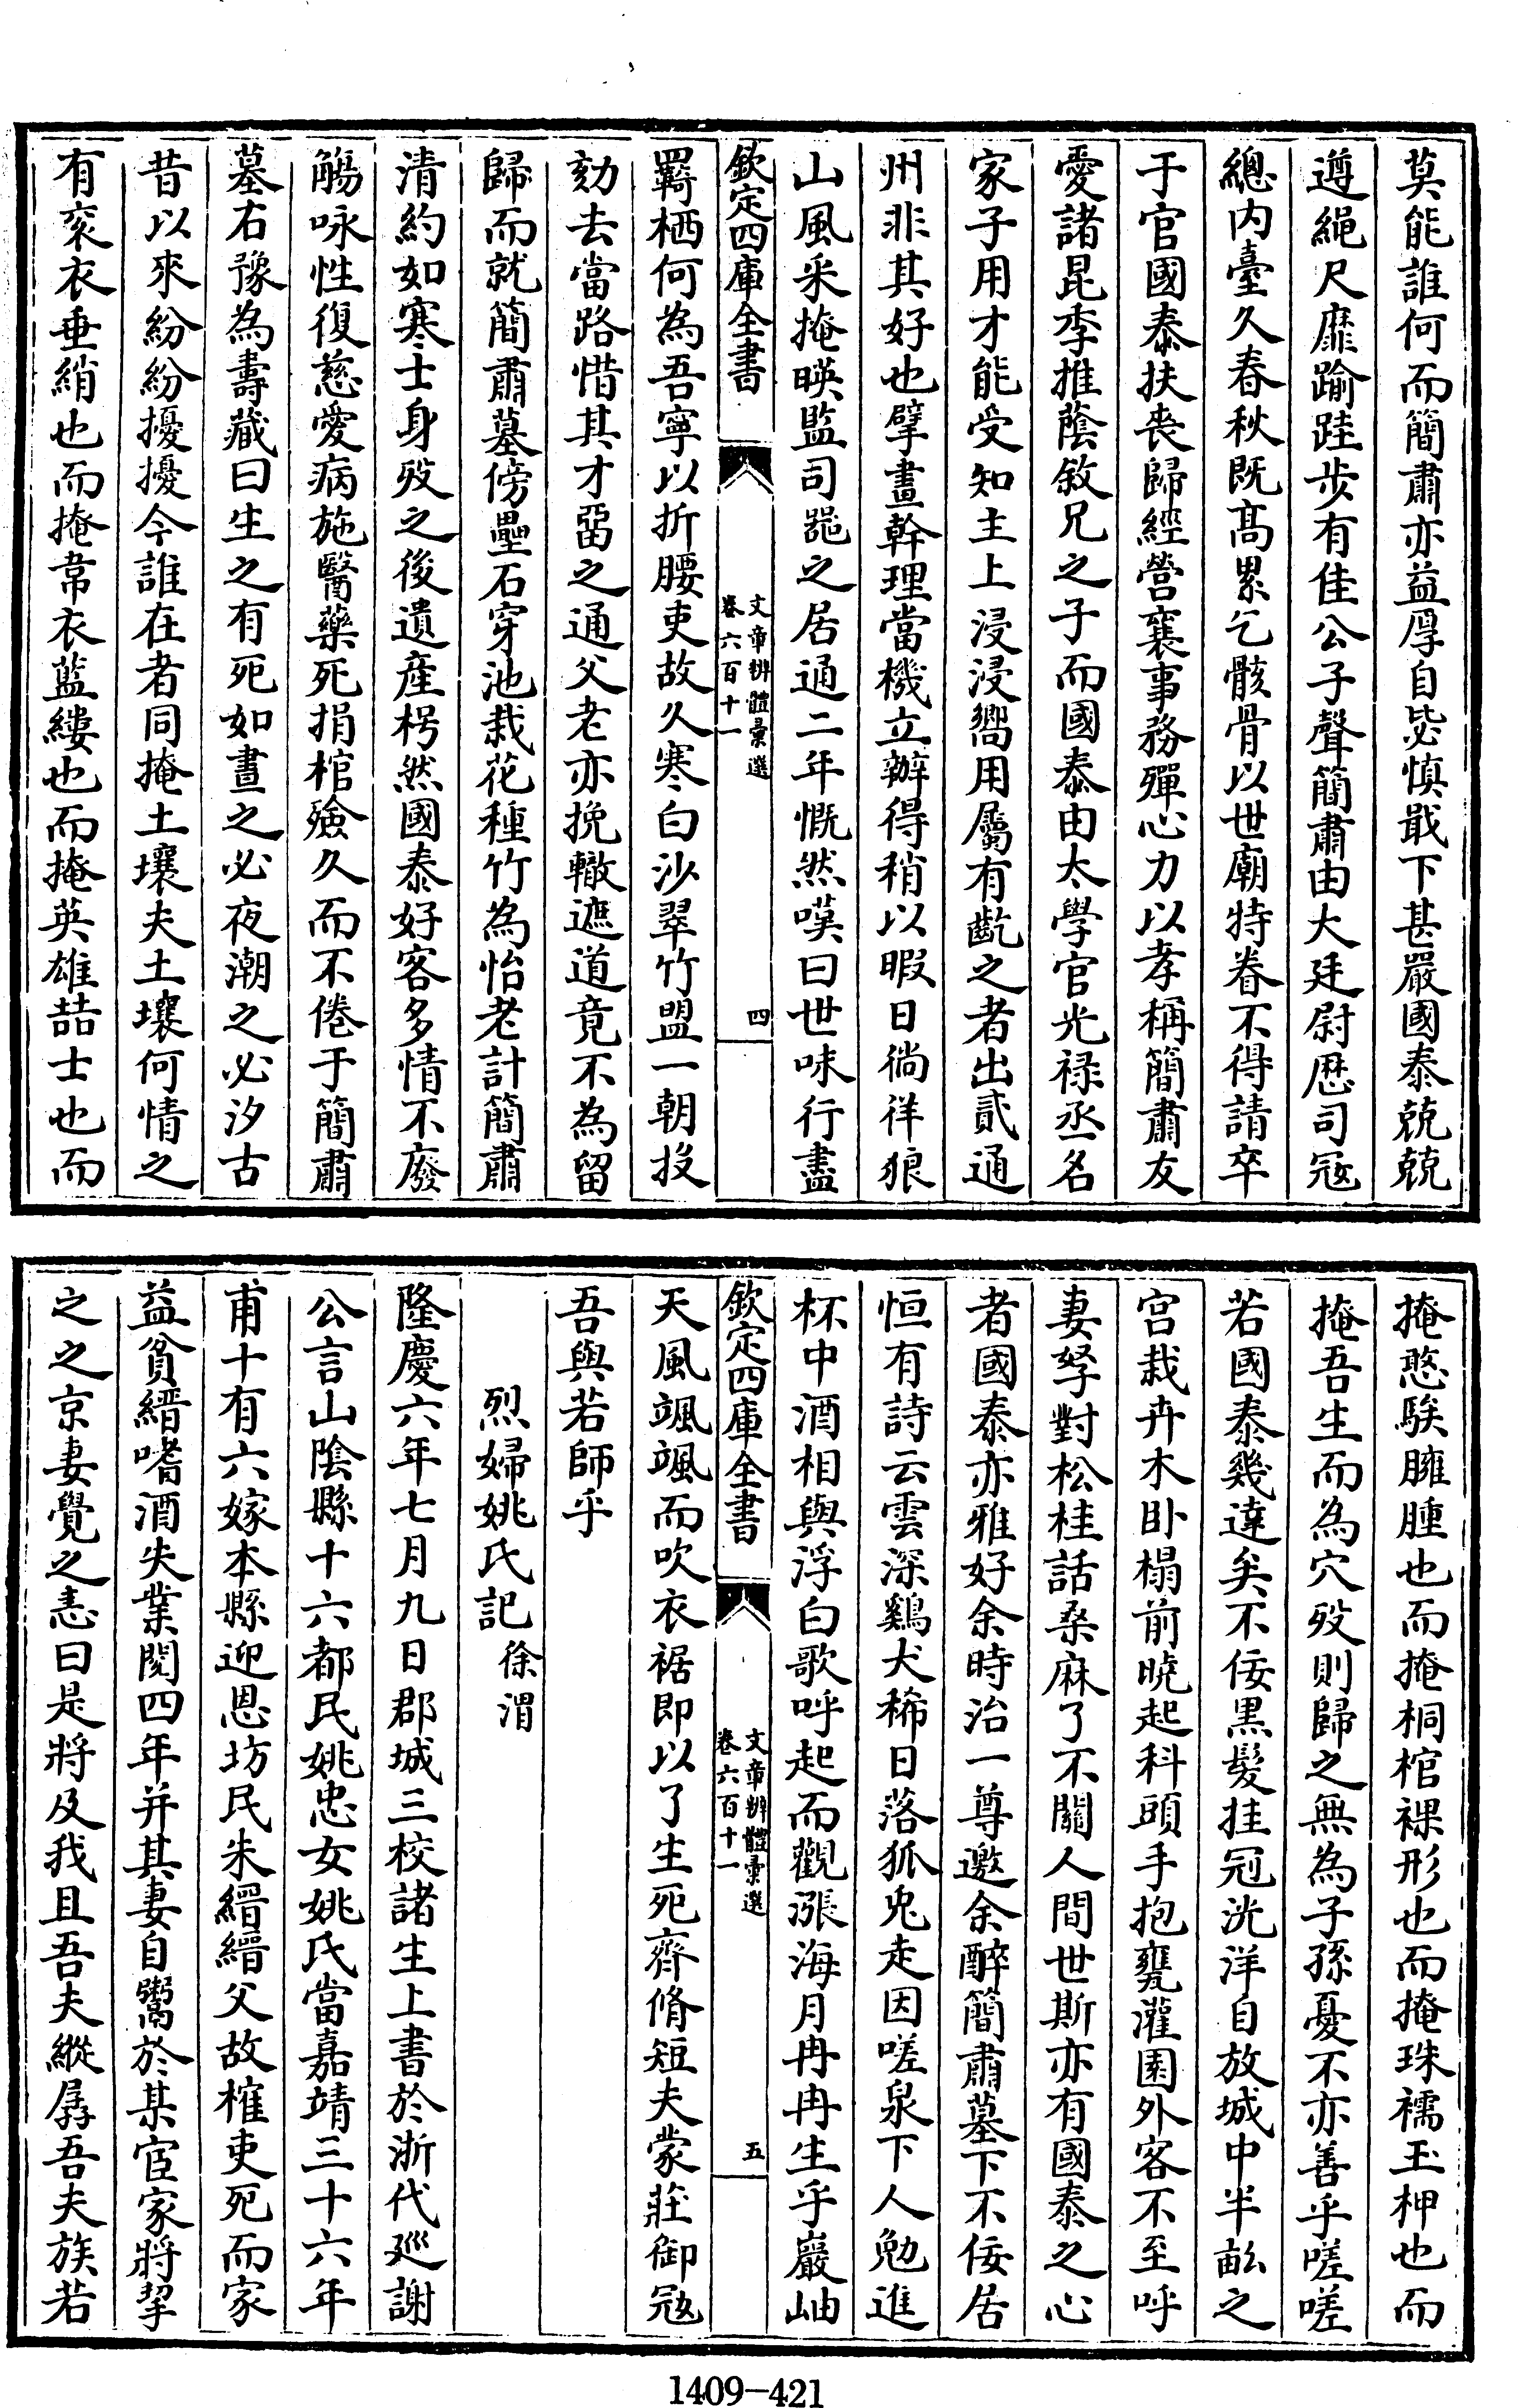 莫能誰何而簡肅亦益厚自毖慎戢下甚嚴國泰兢兢
遵繩尺靡踰跬步有佳公子聲簡肅由大廷尉歴司冦
總内臺久春秋既髙累乞骸骨以世廟特眷不得請卒
于官國泰扶喪歸經營襄事務殫心力以孝稱簡肅友
愛諸昆季推蔭敘兄之子而國泰由太學官光禄丞名
家子用才能受知主上浸浸嚮用屬有齕之者出貳通
州非其好也擘畫幹理當機立辦得稍以暇日徜徉狼
山風采掩暎監司噐之居通二年慨然嘆曰世味行盡
欽定四庫全書
文章辨體彙選
卷六百十一
四
羇栖何為吾寧以折腰吏故久寒白沙翠竹盟一朝投
劾去當路惜其才畱之通父老亦挽轍遮道竟不為留
歸而就簡肅墓傍壘石穿池栽花種竹為怡老計簡肅
清約如寒士身歿之後遺産枵然國泰好客多情不廢
觴咏性復慈愛病施醫藥死捐棺殮久而不倦于簡肅
墓右豫為壽藏曰生之有死如晝之必夜潮之必汐古
昔以來紛紛擾擾今誰在者同掩土壤夫土壤何情之
有衮衣垂綃也而掩韋衣藍縷也而掩英雄喆士也而
掩憨騃臃腫也而掩桐棺祼形也而掩珠襦玉柙也而
掩吾生而為穴歿則歸之無為子孫憂不亦善乎嗟嗟
若國泰幾達矣不佞黒髪挂冠洸洋自放城中半畝之
宫栽卉木卧榻前曉起科頭手抱甕灌園外客不至呼
妻孥對松桂話桑麻了不關人間世斯亦有國泰之心
者國泰亦雅好余時治一尊邀余醉簡肅墓下不佞居
恒有詩云雲深鷄犬稀日落狐兎走因嗟泉下人勉進
杯中酒相與浮白歌呼起而觀漲海月冉冉生乎巖岫
欽定四庫全書
文章辨體彙選
卷六百十一
五
天風颯颯而吹衣裾即以了生死齊脩短夫蒙莊御冦
吾與若師乎
烈婦姚氏記 徐渭
隆慶六年七月九日郡城三校諸生上書於浙代廵謝
公言山隂縣十六都民姚忠女姚氏當嘉靖三十六年
甫十有六嫁本縣迎恩坊民朱縉縉父故榷吏死而家
益貧縉嗜酒失業閲四年并其妻自鬻於某宦家將挈
之之京妻覺之恚曰是將及我且吾夫縱孱吾夫族若
1409-421